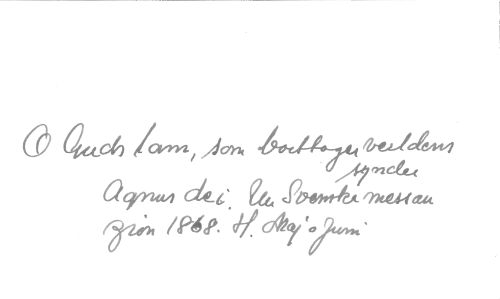 O Guds lam, som borttager verldens
synder
Agnus dei. Ur Svenska messan
Zion 1868. H. Maj o Juni